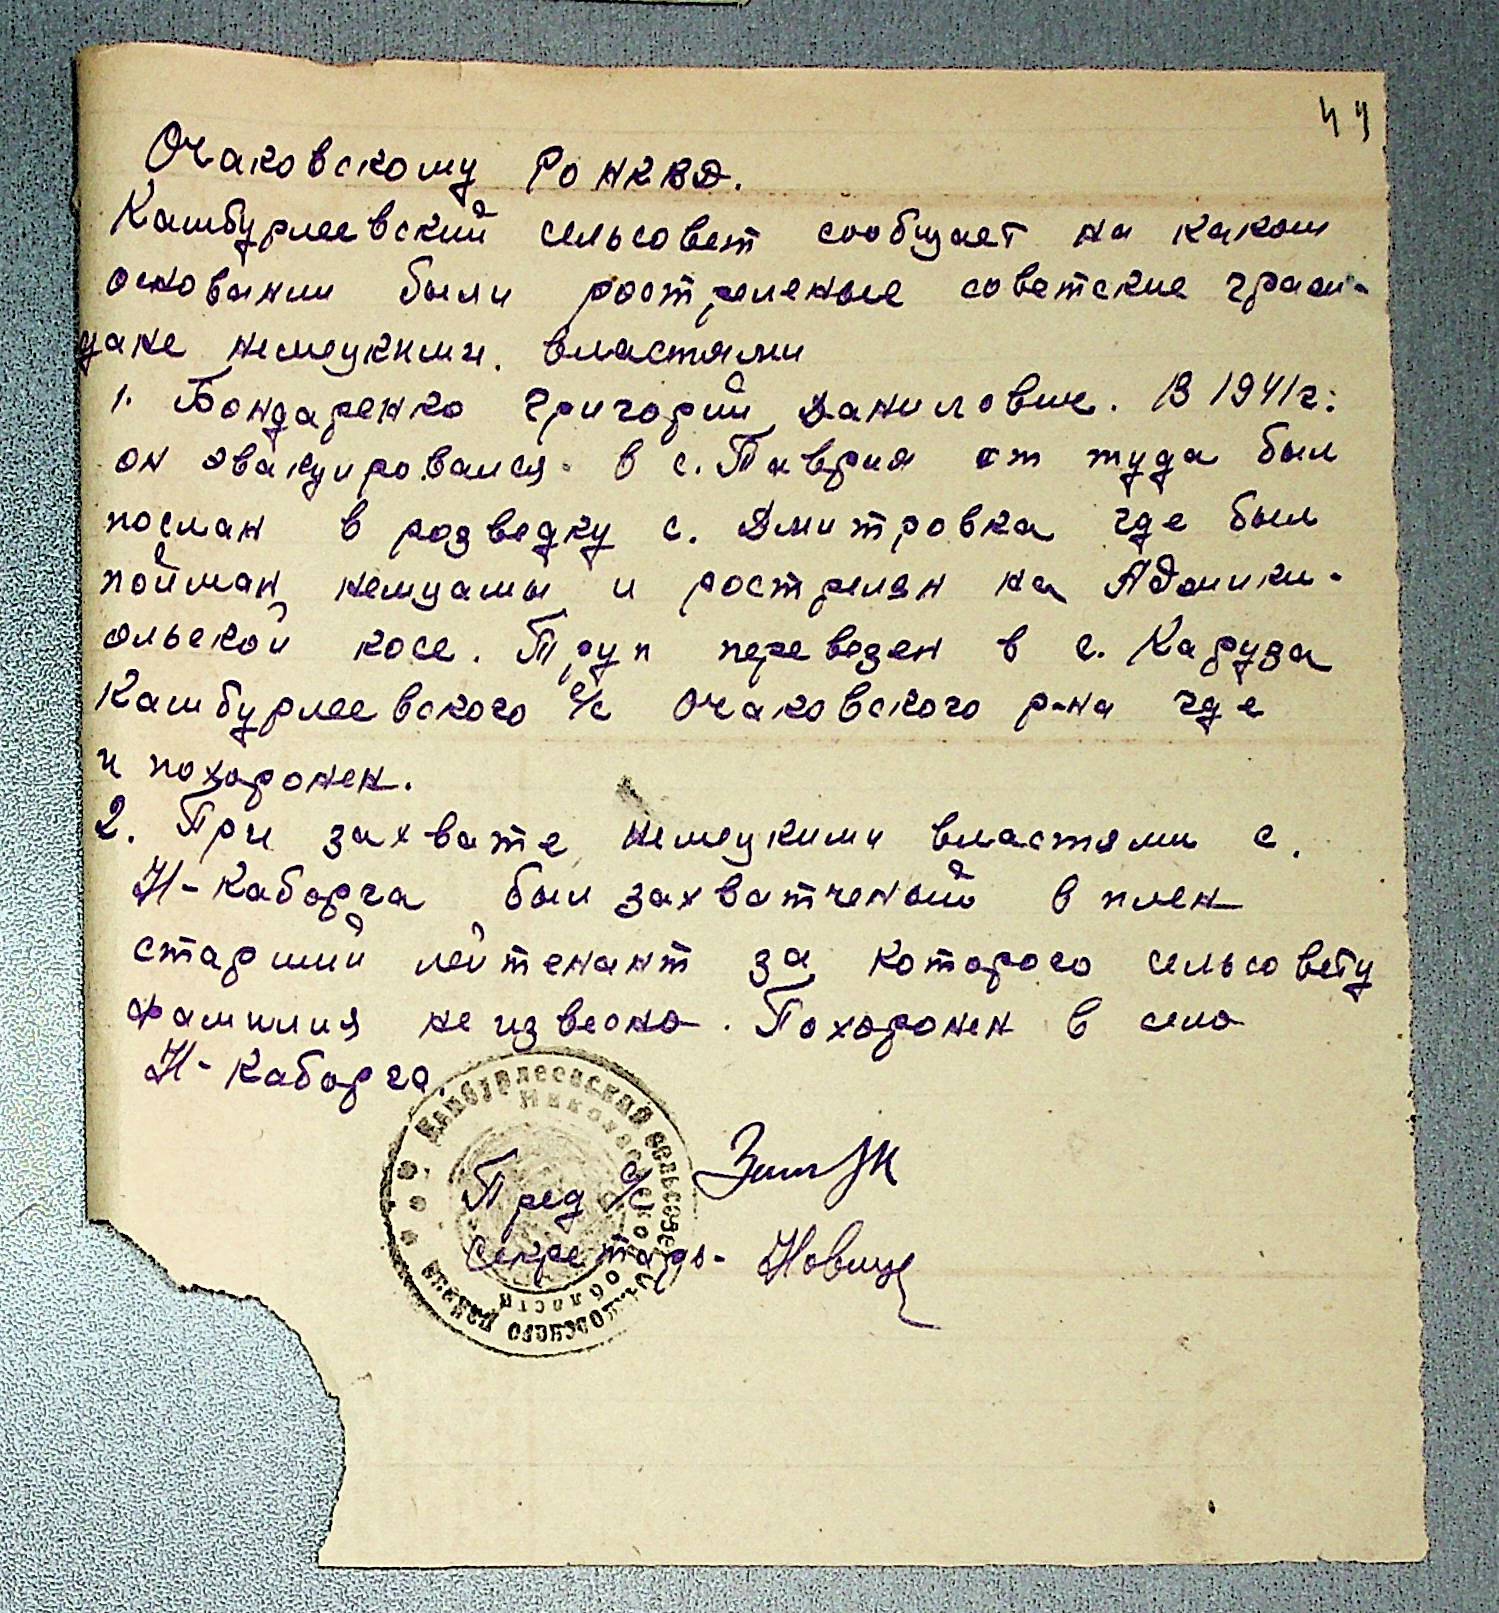 44
Очаковскому РО НКВД.
Камбурлеевский сельсовет сообщает на каком
основании были рострелены советские граж-
дане немецкими властями
1. Бондаренко Григорий Данилович. В 1941 г.
он эвакуировался в с. Таврия от туда был
послан в розведку с. Дмитровка где был
пойман немцамы и рострелян на Аджики-
ольской косе. Труп перевезен в с. Каруза
Камбурлеевского с/с Очаковского р-на где
и похоронен.
2. При захвате немецкими властями с.
Н-Каборга был захватченый в плен
старший лейтенант за которого сельсовету
фамилия не извесна. Похоронен в село
Н-Каборга.
Камбурлеевский сельсовет Очаковского района
Николаевской области
Пред с/с
Секретарь-